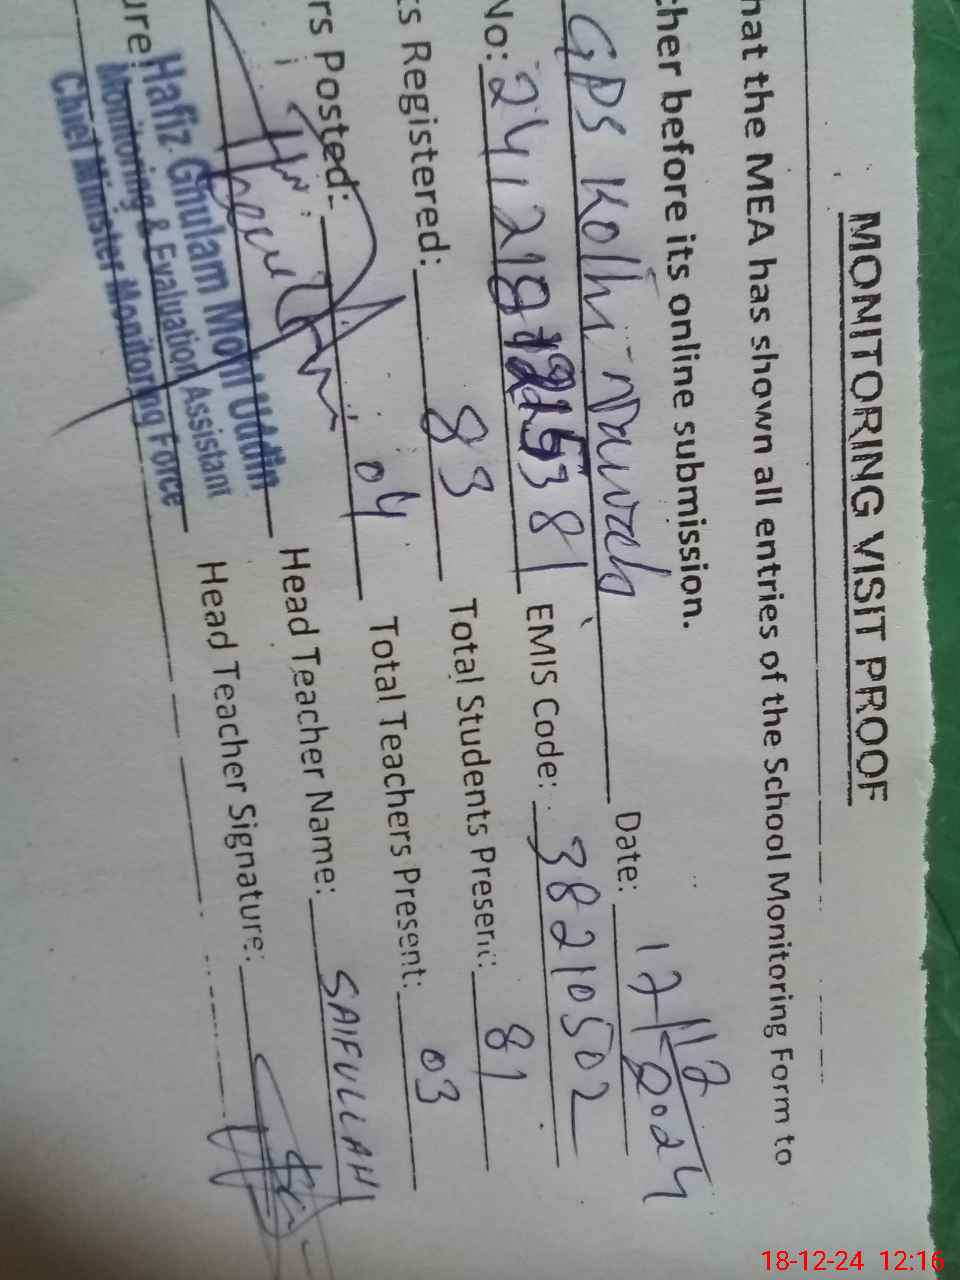 MONITORING VISIT PROOF
hat the MEA has shown all entries of the School Monitoring Form to
cher before its online submission.
GPS Kothi Nawab Date: 17/12/2024
No: EMIS Code: 38210502
s Registered: 83 Total Students Present: 81
rs Posted: 04 Total Teachers Present: 03
Head Teacher Name: SAIFULLAH
ure: Head Teacher Signature:
Hafiz Ghulam Mohi Uddin
Monitoring & Evaluation Assistant
Chief Minister Monitoring Force
18-12-24 12:16